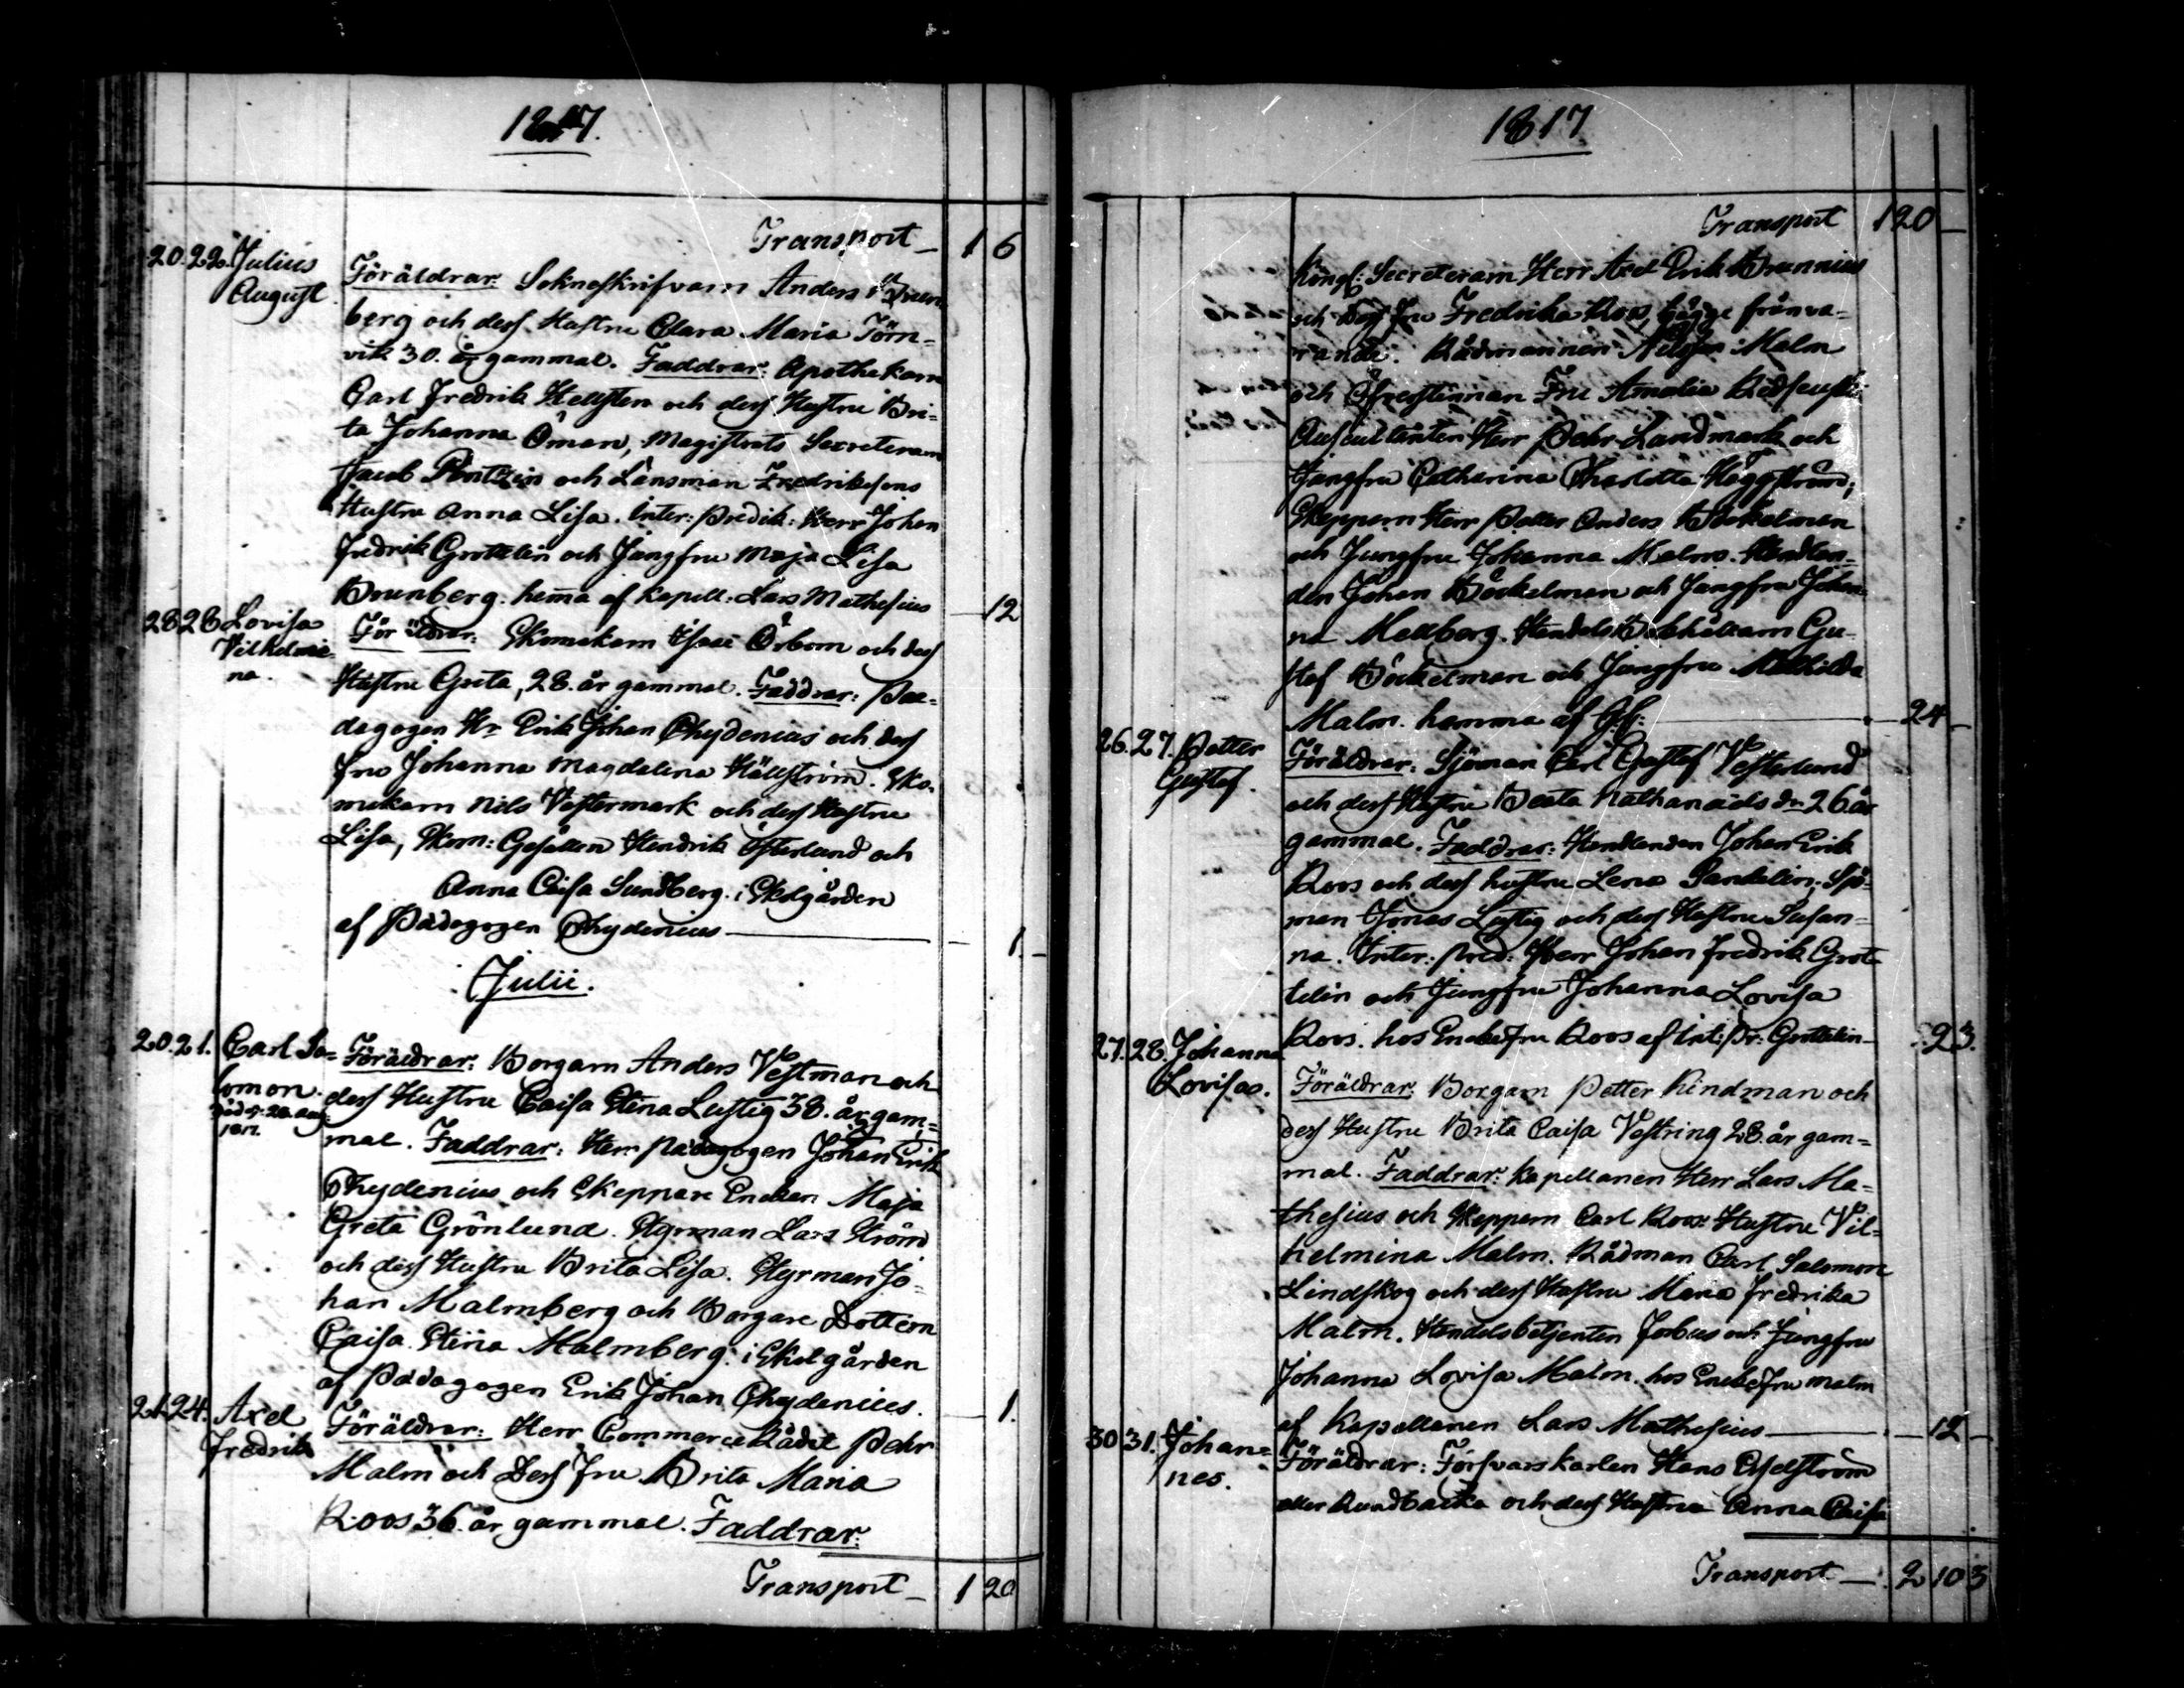 1817.
Transport 1 6
20. 22. Julius August. Föräldrar: Sokneskrifvarn Anders Brun-
berg och dess Hustru Clara Maria Törn-
vik 30. år gammal. Faddrar: Apothekarn
Carl Fredrik Hellsten och dess Hustru Bri-
ta Johanna Öman, Magistrats Secreteraren
Jacob Pontelin och Länsman Fredriksons
Hustru Anna Lisa. Inter: Predik: Herr Johan
Fredrik Grottelin och Jungfru Maja Lisa
Brunberg. hema af Kapell: Lars Mathesius 12
28 28 Lovisa Vilhelmi-na. Föräldrar: Skomakarn Isaac Örbom och dess
Hustru Greta, 28. år gammal. Faddrar: Pæ-
dagogen Hr Erik Johan Chydenius och dess
Fru Johanna Magdalena Hällström. Sko-
makarn Nils Vestermark och dess Hustru
Lisa, Skom: Gesällen Hendrik Österlund och
Anna Caisa Sundberg. i Skolgården
af Pädagogen Chydenius 1.
Julii.
20. 21. Carl Sa-lomon. död d. 20 Aug 1817. Föräldrar: Borgarn Anders Vestman och
dess Hustru Caisa Stina Lustig 38. år gam-
mal. Faddrar: Herr Pädagogen Johan Erik
Chydenius och Skeppare Enckan Maja
Greta Grönlund. Styrman Lars Ström
och dess Hustru Brita Lisa. Styrman Jo-
han Malmberg och Borgare Dottern
Caisa Stina Malmberg. i Skolgården
af Pädagogen Erik Johan Chydenius. 1.
21. 24. Axel Fredrik Föräldrar: Herr Commerce Rådet Pehr
Malm och Dess Fru Brita Maria
Roos 36. år gammal. Faddrar:
Transport 1 20
1817
Transport 1 20
Kongl: Secreteraren Herr Axel Erik Brunnius
och Dess Fru Fredrika Roos, bägge frånva-
rande. Rådmannen Malm
och Öfverstinnan Fru Amalia
Auscultanten Herr Pehr Landmark och
Jungfru Catharina Charlotta Häggström;
Skeppern Herr Petter Anders Böckelman
och Jungfru Johanna Malm. Handlan-
den Johan Böckelman och Jungfru Johan-
na Mellberg. Handels Bokhållarn Gu-
staf Böckelman och Jungfru Mathilda
Malm. hemma af 24
26. 27. Petter Gustaf. Föräldrar: Sjöman Carl Gustaf Vesterlund
och dess Hustru Beata Nathanaels dr 26 år
gammal. Faddrar: Handlanden Johan Erik
Roos och dess hustru Lena Sandelin. Sjö-
man Jonas Lustig och dess Hustru Susan-
na. Inter: Pred: Herr Johan Fredrik Grot-
telin och Jungfru Johanna Lovisa
Roos. hos Enckefru Roos af Int: Pr: Grottelin 23.
27. 28. Johanna Lovisa. Föräldrar: Borgarn Petter Kindman och
dess Hustru Brita Caisa Vestring 28. år gam-
mal. Faddrar: Kapellanen Herr Lars Ma-
thesius och Skeppern Carl Roos Hustru Vil-
helmina Malm. Rådman Carl Salomon
Lindskog och dess Hustru Maria Fredrika
Malm. Handelsbetjenten Forbus och Jungfru
Johanna Lovisa Malm. hos Enckefru Malm
af Kapellanen Lars Mathesius 12
30 31. Johan-nes. Föräldrar: Försvarskarlen Hans
eller Rundbacka och dess Hustru Anna Caisa
Transport 2 10 3